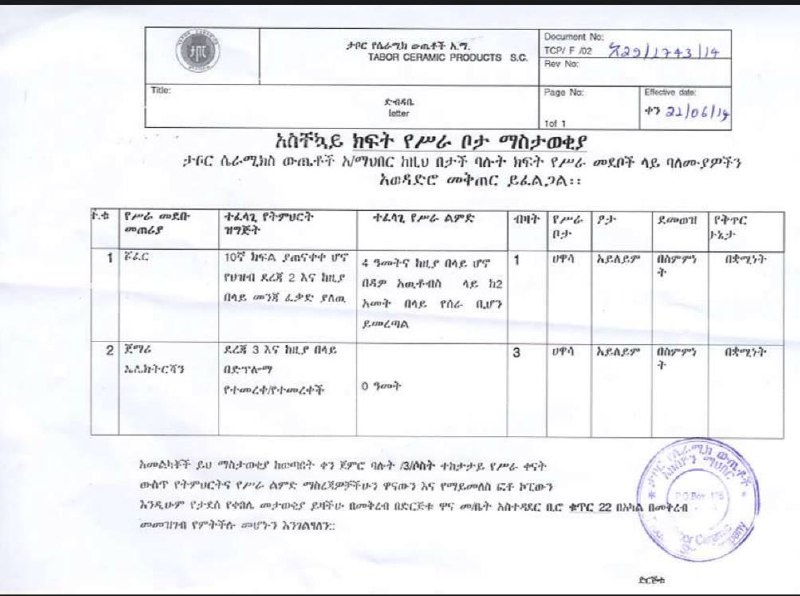 ታቦር የሴራሚክ ውጤቶች አ.ማ.
TABOR CERAMIC PRODUCTS S.C.
Document No:
TCP/ F /02 /1743/14
Rev No:
Title:
ድብዳቤ
letter
Page No:
1of 1
Effective date:
ቀን 21/06/14
አስቸኳይ ክፍት የሥራ ቦታ ማስታወቂያ
ታቦር ሴራሚክስ ውጤቶች አ/ማህበር ከዚህ በታች ባሉት ክፍት የሥራ መደቦች ላይ ባለሙያዎችን
አወዳድሮ መቅጠር ይፈልጋል፡፡
ተ.ቁ የሥራ መደቡ መጠሪያ ተፈላጊ የትምህርት ዝግጅት ተፈላጊ የሥራ ልምድ ብዛት የሥራ ቦታ ፆታ ደመወዝ የቅጥር ሁኔታ
1 ሾፌር 10ኛ ክፍል ያጠናቀቀ ሆኖ
የህዝብ ደረጃ 2 እና ከዚያ
በላይ መንጃ ፈቃድ ያለዉ
4 ዓመትና ከዚያ በላይ ሆኖ
በዳዎ አዉቶብስ ላይ ከ2
አመት በላይ የሰራ ቢሆን
ይመረጣል
1 ሀዋሳ አይለይም በስምምነት በቋሚነት
2 ጀማሪ
ኤሌክትርሻን
ደረጃ 3 እና ከዚያ በላይ
በድፕሎማ
የተመረቀ/የተመረቀች
0 ዓመት
3 ሀዋሳ አይለይም በስምምነት በቋሚነት
አመልካቾች ይህ ማስታወቂያ ከወጣበት ቀን ጀምሮ ባሉት /3/ሶስት ተከታታይ የሥራ ቀናት
ውስጥ የትምህርትና የሥራ ልምድ ማስረጃዎቻችሁን ዋናውን እና የማይመለስ ፎቶ ኮፒውን
እንዲሁም የታደሰ የቀበሌ መታወቂያ ይዛችሁ በመቅረብ በድርጅቱ ዋና መ/ቤት አስተዳደር ቢሮ ቁጥር 22 በአካል በመቅረብ
መመዝገብ የምትችሉ መሆኑን እንገልፃለን፡፡
ታቦር የሴራሚክ ውጤቶች
አክሲዮን ማህበር
P.O.Box
Tabor Ceramic
ድርጅቱ